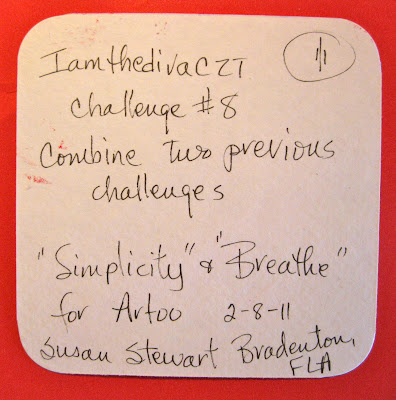 IamthedivaCZT
1/1
Challenge #8
Combine two previous
challenges
"Simplicity" & "Breathe"
for Artoo 2-8-11
Susan Stewart Bradenton,
FLA